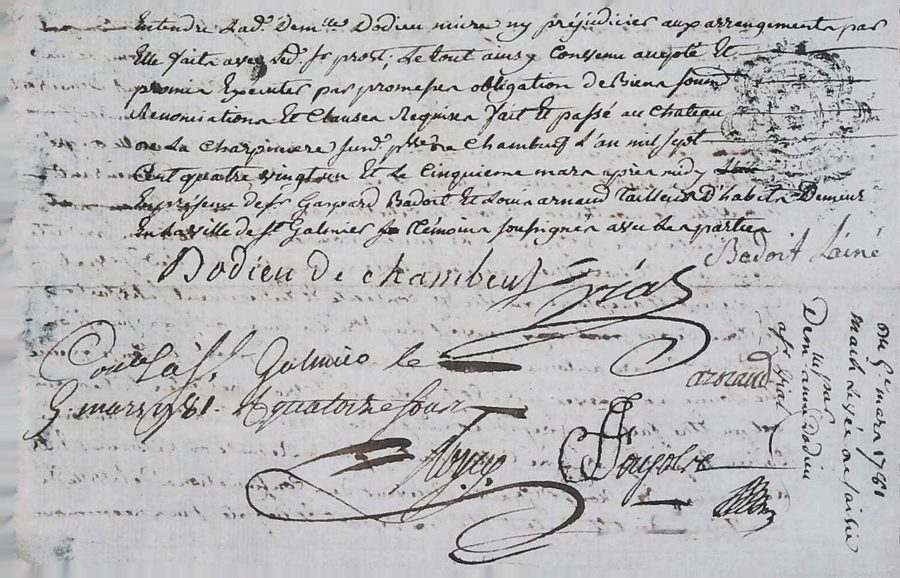 Entendre Lad. Demlle Dodieu nuire ny préjudicier aux arrangements par
Elle faits avec led. Sr prost; Le tout ainsy Convenu accepté Et
promis Executer par promesses obligation de Biens soumi
Renonciations Et Clauses Requises fait Et passé au Chateau
de La Charpiniere par de Chambeuf L'an mil sept
Cent quatre vingt un Et Le Cinquieme mars après midy
En présence de sr Gaspard Badoit Et Louis arnaud Tailleur D'habits Demeur
En La ville de St Galmier Témoins soussignés avec Les parties
Badoit Lainé
Dodieu de chambeuf
arnaud
Conlé a St Galmier le
5. mars 1781. quatorze sous
Du 5e mars 1781
main Levée de saisie
Demlle anne Dodieu